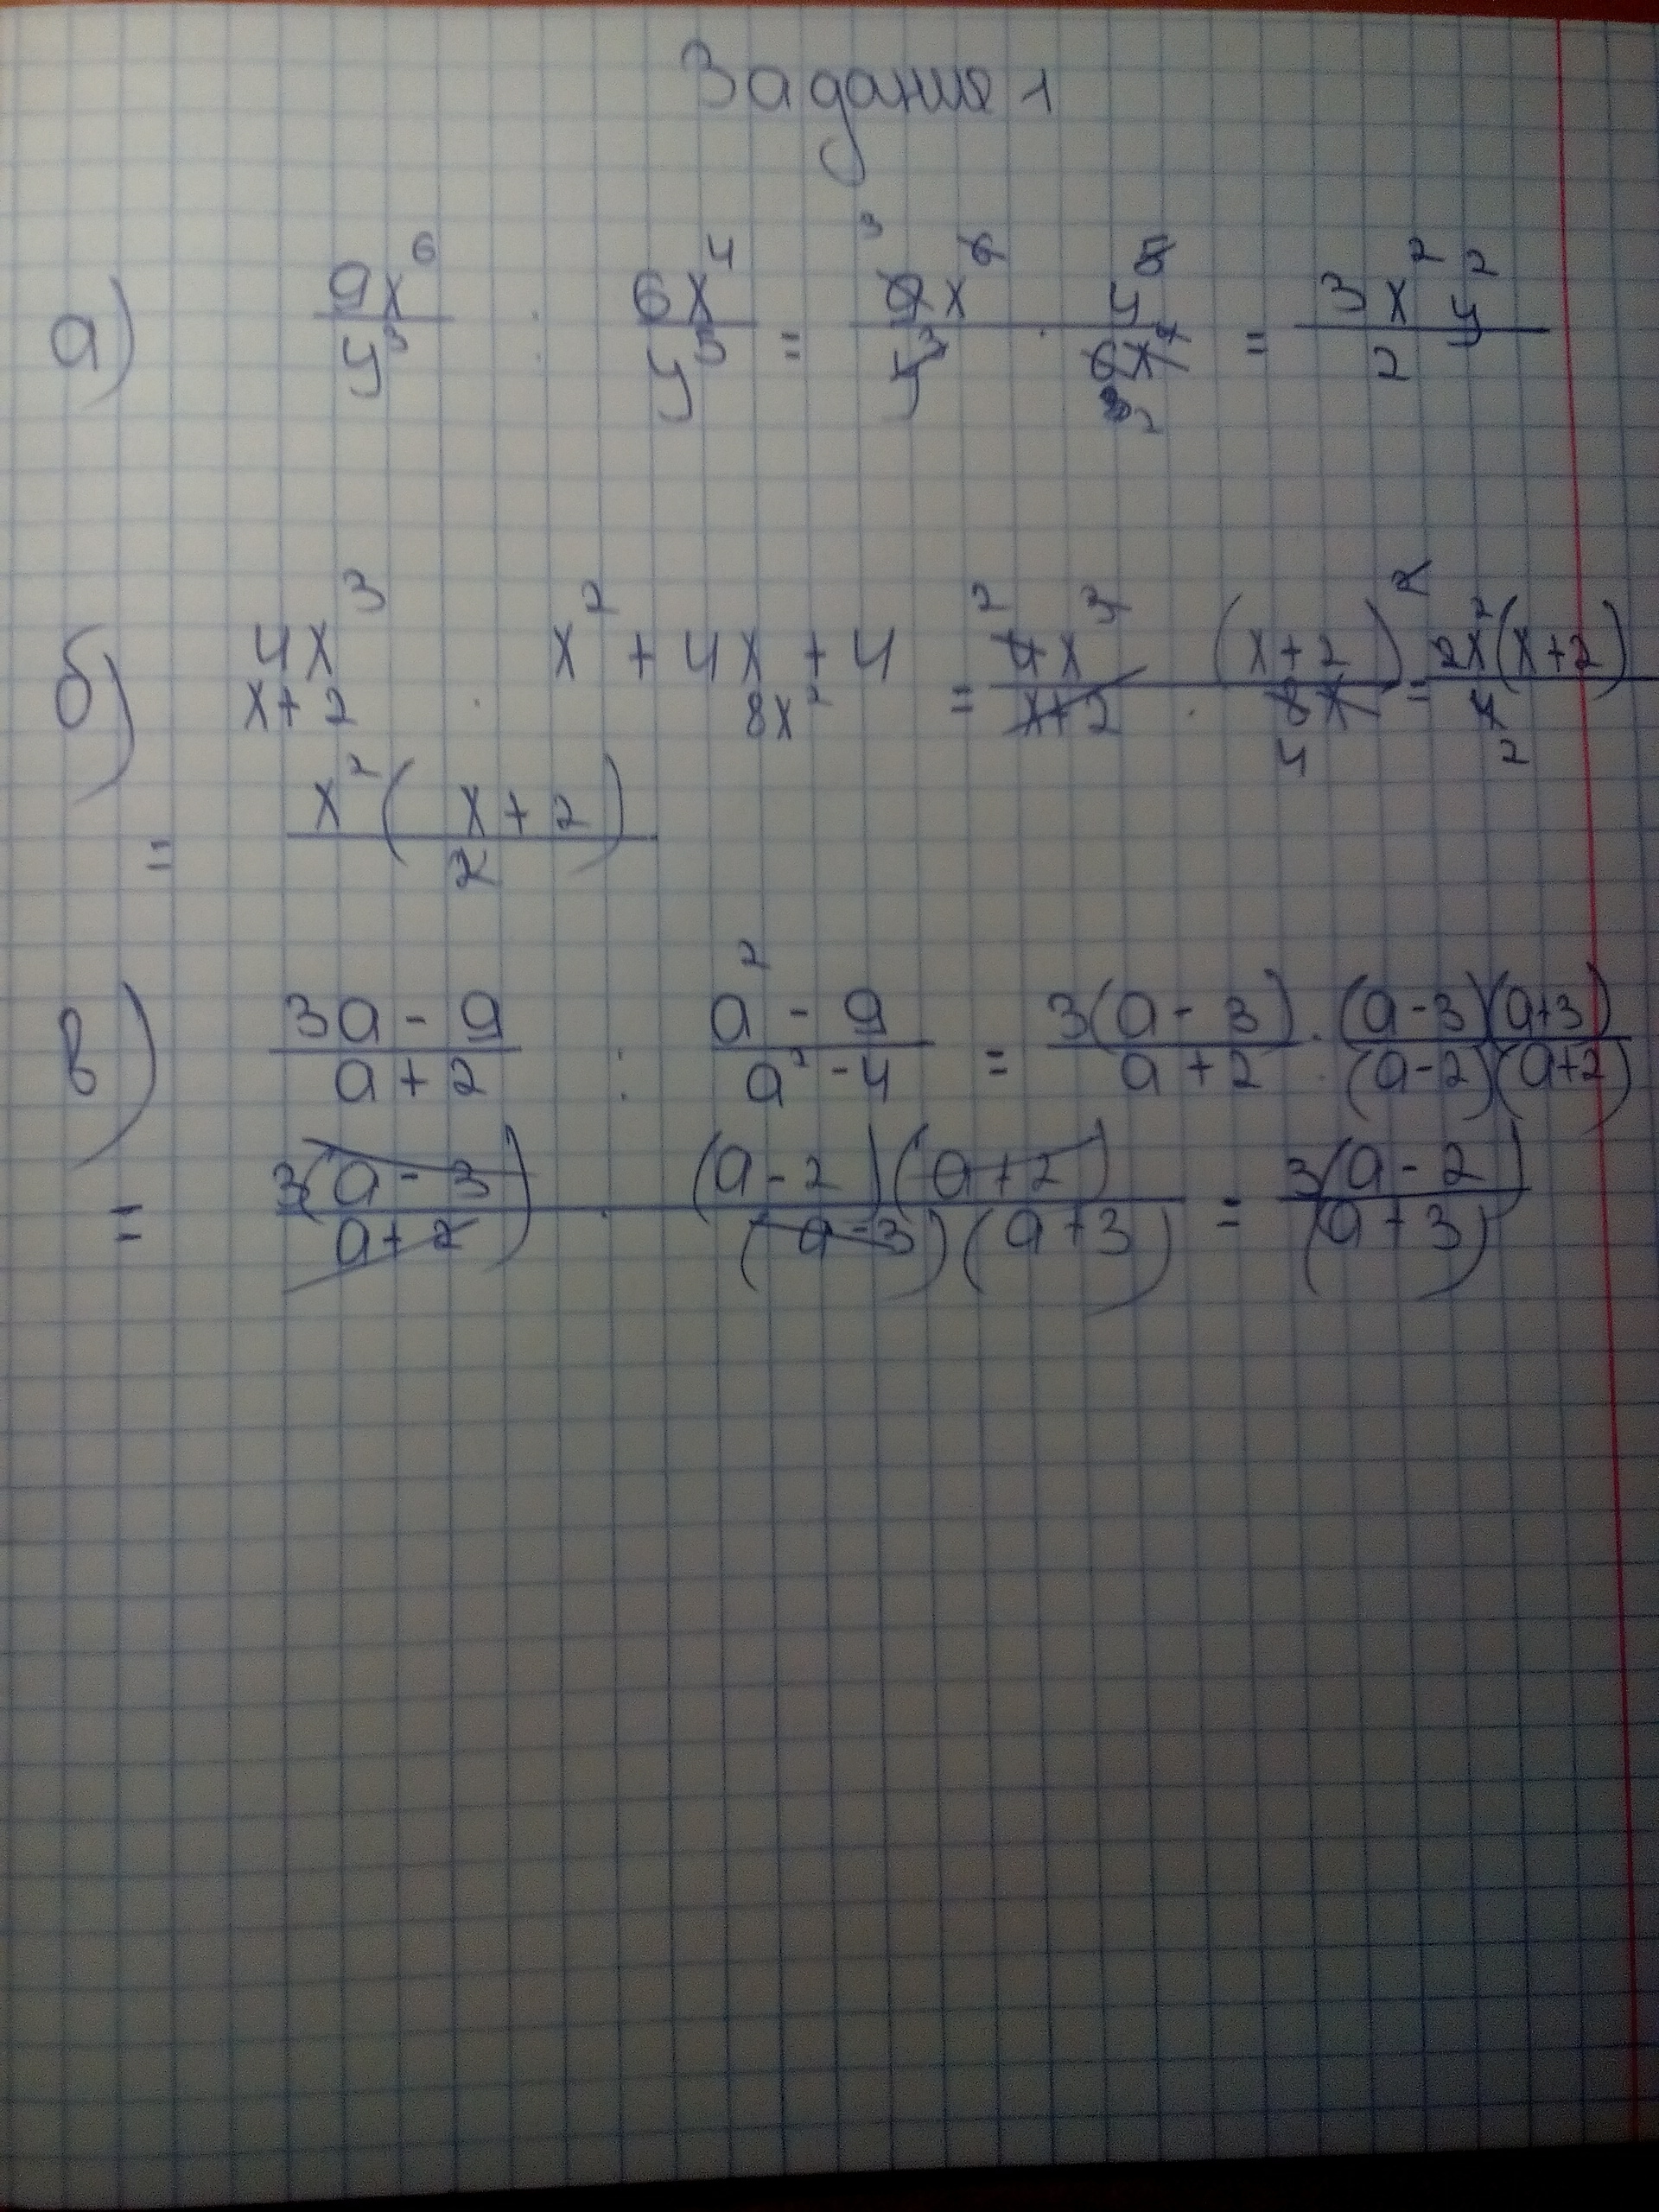 Задание 1
а) 9x⁶/y³ : 6x⁴/y⁵ = 9x⁶/y³ · y⁵/6x⁴ = 3x²y²/2
б) 4x³/x+2 · x²+4x+4/8x² = 4x³/x+2 · (x+2)²/8x = 2x²(x+2)/4
= x²(x+2)/2
в) 3a-9/a+2 : a²-9/a²-4 = 3(a-3)/a+2 : (a-3)(a+3)/(a-2)(a+2)
= 3(a-3)/a+2 · (a-2)(a+2)/(a-3)(a+3) = 3(a-2)/(a+3)